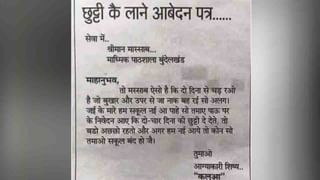 छुट्टी कै लाने आबेदन पत्र......
सेवा में..
श्रीमान मास्साब...
माध्मिक पाठशाला बुंदेलखंड
माहानुभव,
तो मस्साब ऐसो है कि दो दिना से चड़ रओ
है जो बुखार और उपर से जा नाक बह रई सो अलग।
जई के मारे हम स्कूल नई आ पाहे सो तमाए पाऊ पर
के निवेदन आए कि दो-चार दिना की छुट्टी दे देते, तो
बडो अछ्छो रहतो और अगर हम नई आये तो कोन सो
तमाओ सकूल बंद हो जै।
तुमाओ
आग्याकारी शिष्य..
"कलुआ"